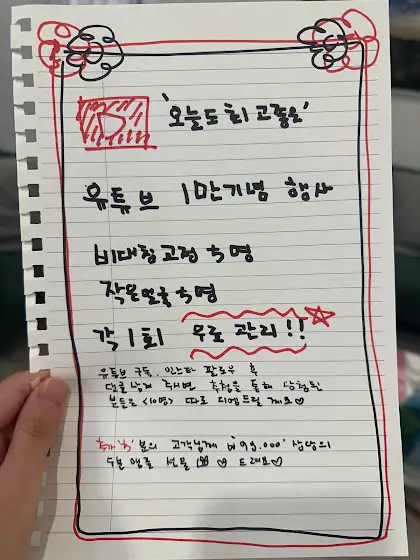 '오늘도 최고좋은'
유튜브 1만기념 행사
비대칭교정 5명
작은얼굴 5명
각 1회 무료 관리!!
유튜브 구독, 인스타 팔로우 후
댓글 남겨 주시면 추첨을 통해 당첨된
분들은 <10명> 따로 디엠드릴게요♡
추가 '5'분의 고객님께 '₩99,000' 상당의
수분 앰플 선물 ♡ 드려요♡